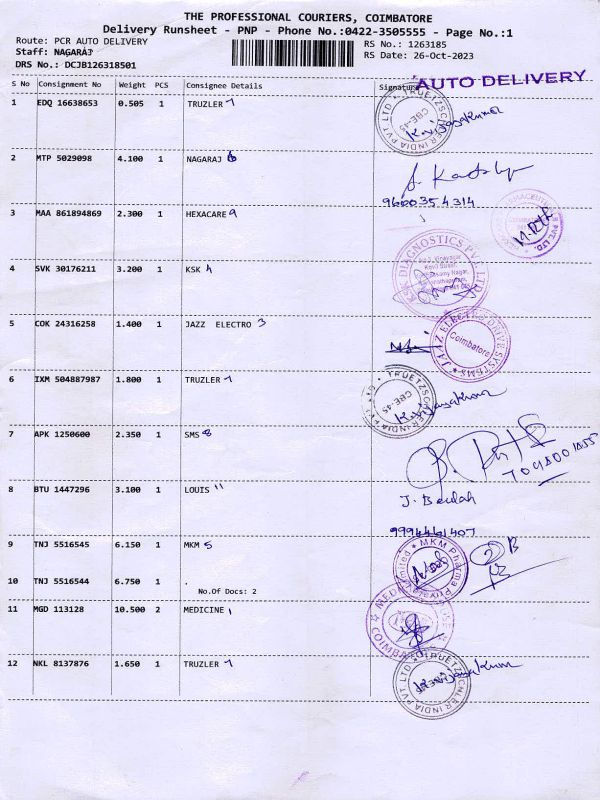 THE PROFESSIONAL COURIERS, COIMBATORE
Delivery Runsheet - PNP - Phone No.:0422-3505555 - Page No.:1
Route: PCR AUTO DELIVERY
RS No.: 1263185
Staff: NAGARAJ
RS Date: 26-Oct-2023
DRS No.: DCJB126318501
AUTO DELIVERY
S No Consignment No Weight PCS Consignee Details Signature
1 EDQ 16638653 0.505 1 TRUZLER 7
TRUETZSCHLER INDIA PVT LTD
CBE-45
2 MTP 5029098 4.100 1 NAGARAJ 6
9600354314
3 MAA 861894869 2.300 1 HEXACARE 9
4 SVK 30176211 3.200 1 KSK 4
KSK DIAGNOSTICS PVT LTD
5 COK 24316258 1.400 1 JAZZ ELECTRO 3
JAAZ ELECTRO DRIVE SYSTEMS
Coimbatore
6 IXM 504887987 1.800 1 TRUZLER 7
TRUETZSCHLER INDIA PVT LTD
CBE-45
7 APK 1250600 2.350 1 SMS 8
8 BTU 1447296 3.100 1 LOUIS 11
J. Beulah
9994461407
9 TNJ 5516545 6.150 1 MKM 5
MKM Pharma Private Limited
10 TNJ 5516544 6.750 1 .
No.Of Docs: 2
11 MGD 113128 10.500 2 MEDICINE 1
12 NKL 8137876 1.650 1 TRUZLER 7
TRUETZSCHLER INDIA PVT LTD